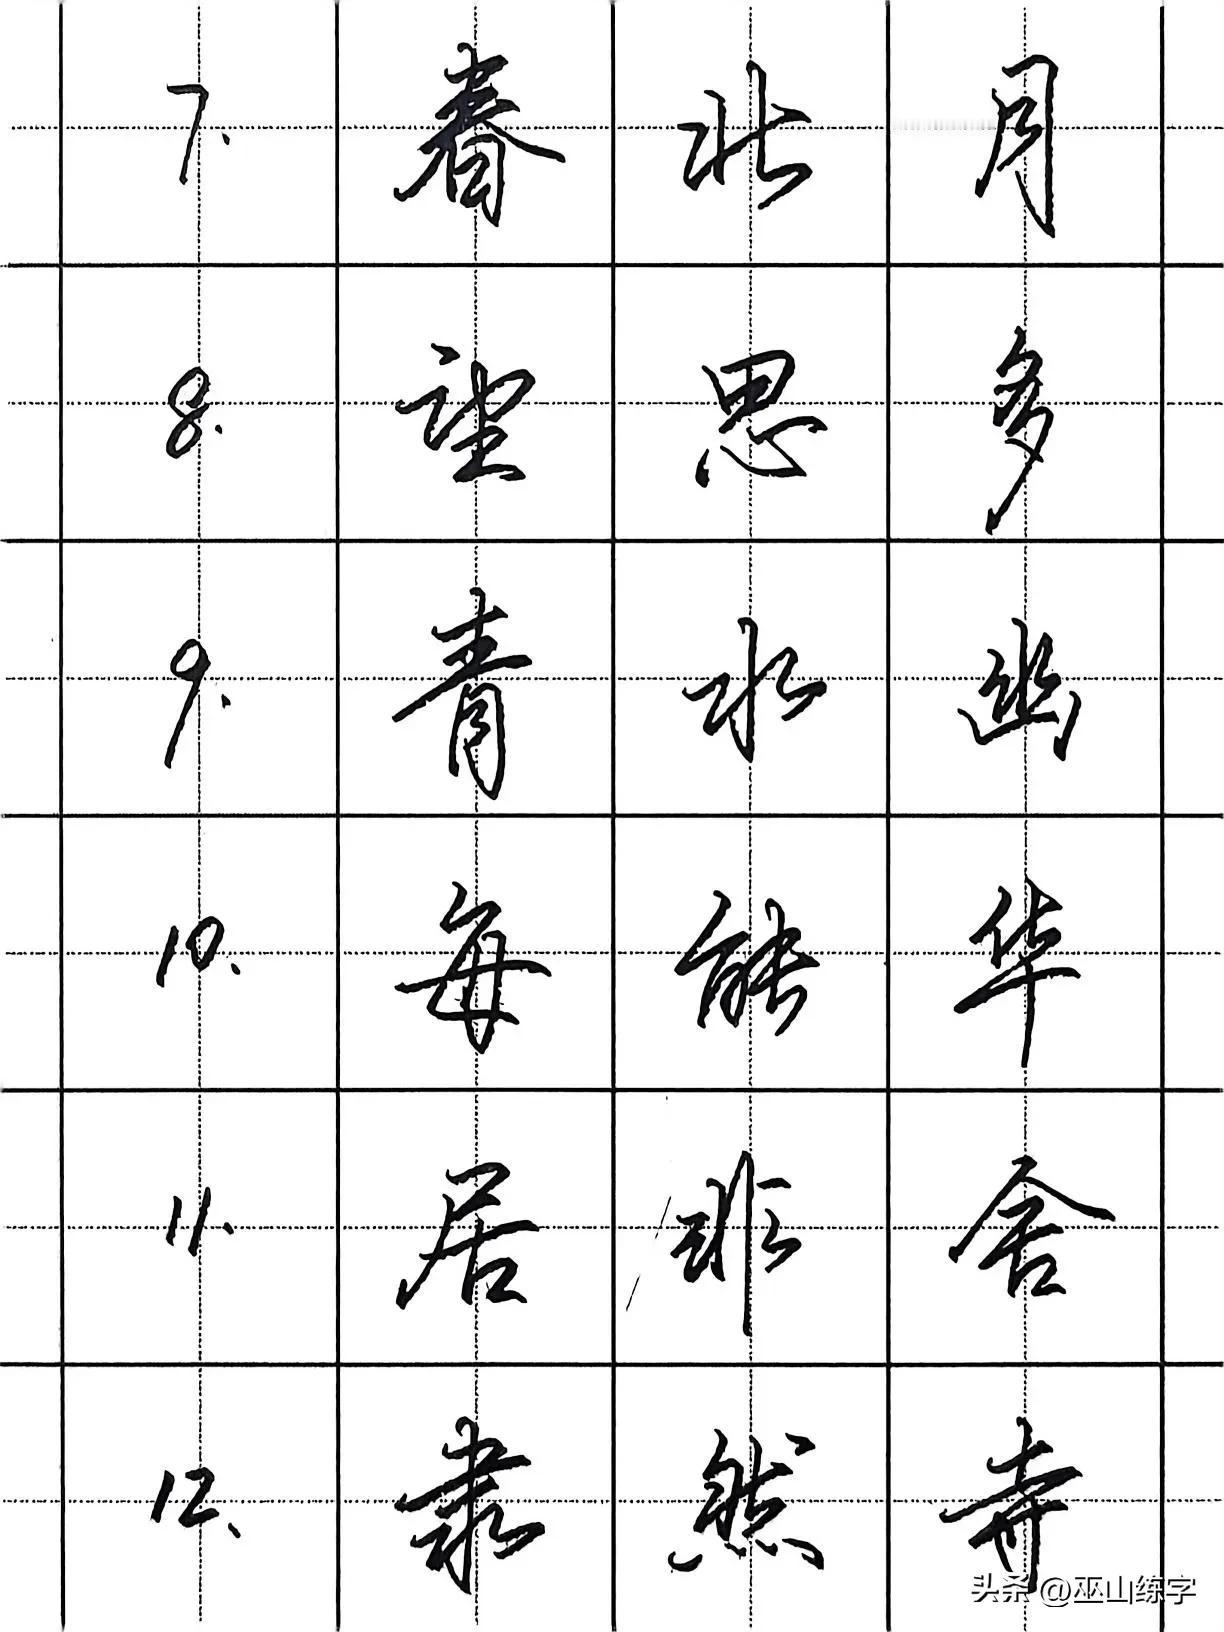 7. 春 北 月
8. 望 思 多
9. 青 水 幽
10. 每 能 华
11. 居 非 舍
12. 隶 然 寺
头条 @巫山练字